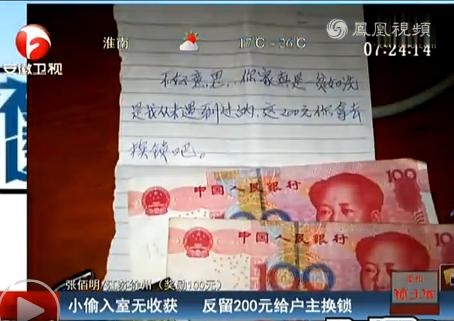 鳳凰視頻
安徽卫视
淮南
17℃~26℃
07:24:14
不好意思，你家真是貧如洗
是我从未遇到过的，这200元你拿去
换锁吧。
中国人民银行
100
中国人民银行
100
张佰明/江苏徐州（奖励100元）
小偷入室无收获 反留200元给户主换锁